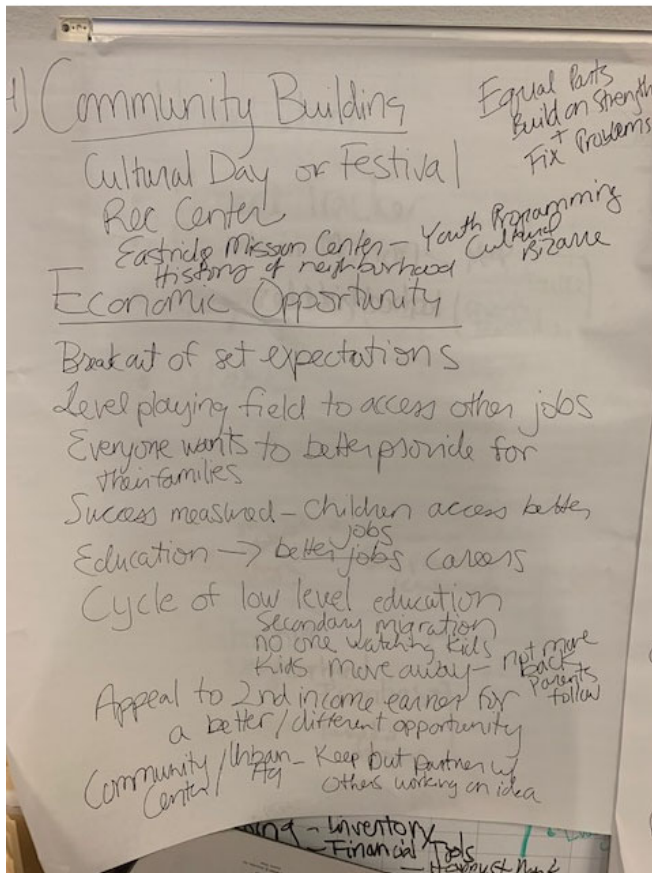 1) Community Building
Equal Parts
Build on Strength
+
Fix Problems
Cultural Day or Festival
Rec Center
Eastridge Mission Center - Youth Programming
Cultural
Bizarre
History of neighborhood
Economic Opportunity
Break out of set expectations
Level playing field to access other jobs
Everyone wants to better provide for
their families
Success measured - Children access better
jobs
Education → better jobs careers
Cycle of low level education
Secondary migration
no one watching kids
Kids move away - not move
back
Parents
follow
Appeal to 2nd income earner for
a better/different opportunity
Community / Urban - Keep but partner w/
Center / Ag others working on idea
- Inventory
- Financial Tools